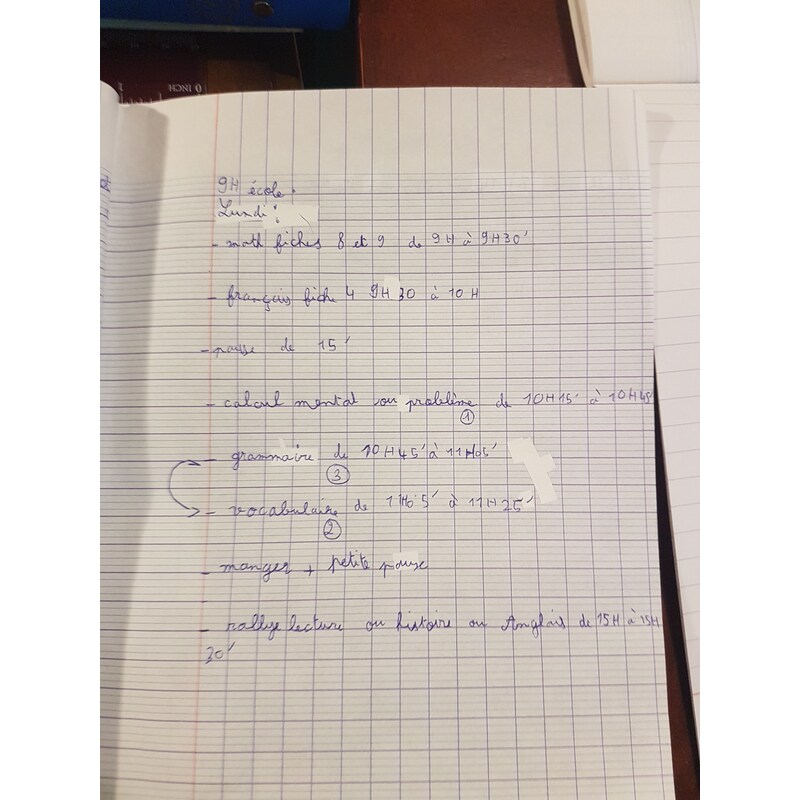 0 INCH
9H école.
Lundi :
- math fiches 8 et 9 de 9H à 9H30'
- français fiche 4 9H30 à 10H
- pause de 15'
- calcul mental ou problème de 10H15' à 10H45
①
- grammaire de 10H45' à 11H05'
③
- vocabulaire de 11H05' à 11H25'
②
- manger + petite pause
- rallye lecture ou histoire ou Anglais de 15H à 15H
30'